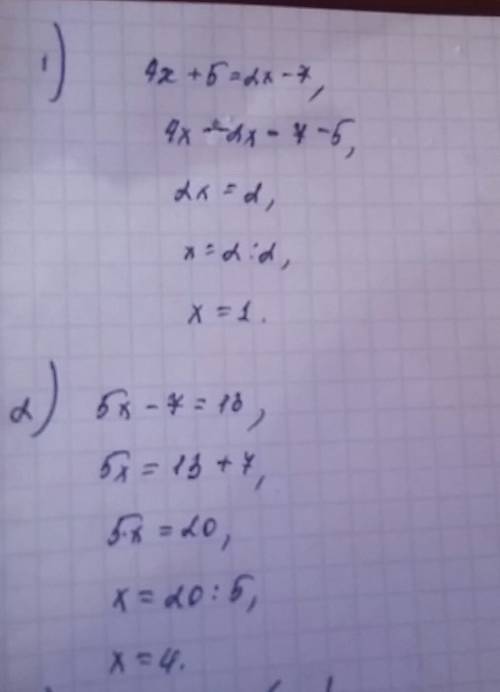 1)
4x + 5 = 2x - 7,
4x - 2x - 7 - 5,
2x = 2,
x = 2 : 2,
x = 1.
2)
5x - 7 = 13,
5x = 13 + 7,
5x = 20,
x = 20 : 5,
x = 4.